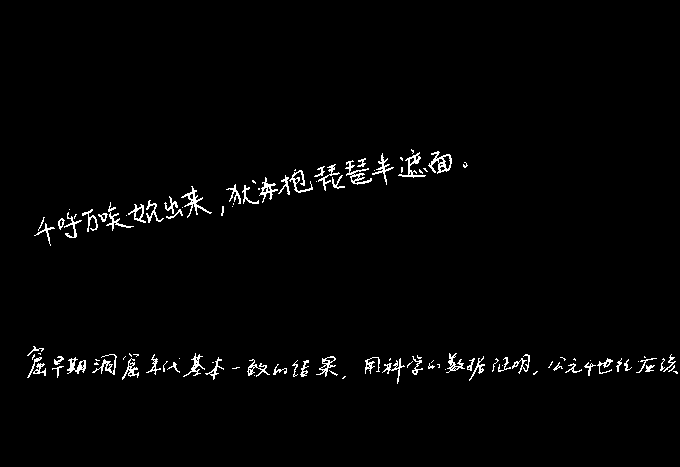 千呼万唤始出来，犹抱琵琶半遮面。
窟早期洞窟年代基本一致的结果，用科学的数据证明，公元4世纪应该